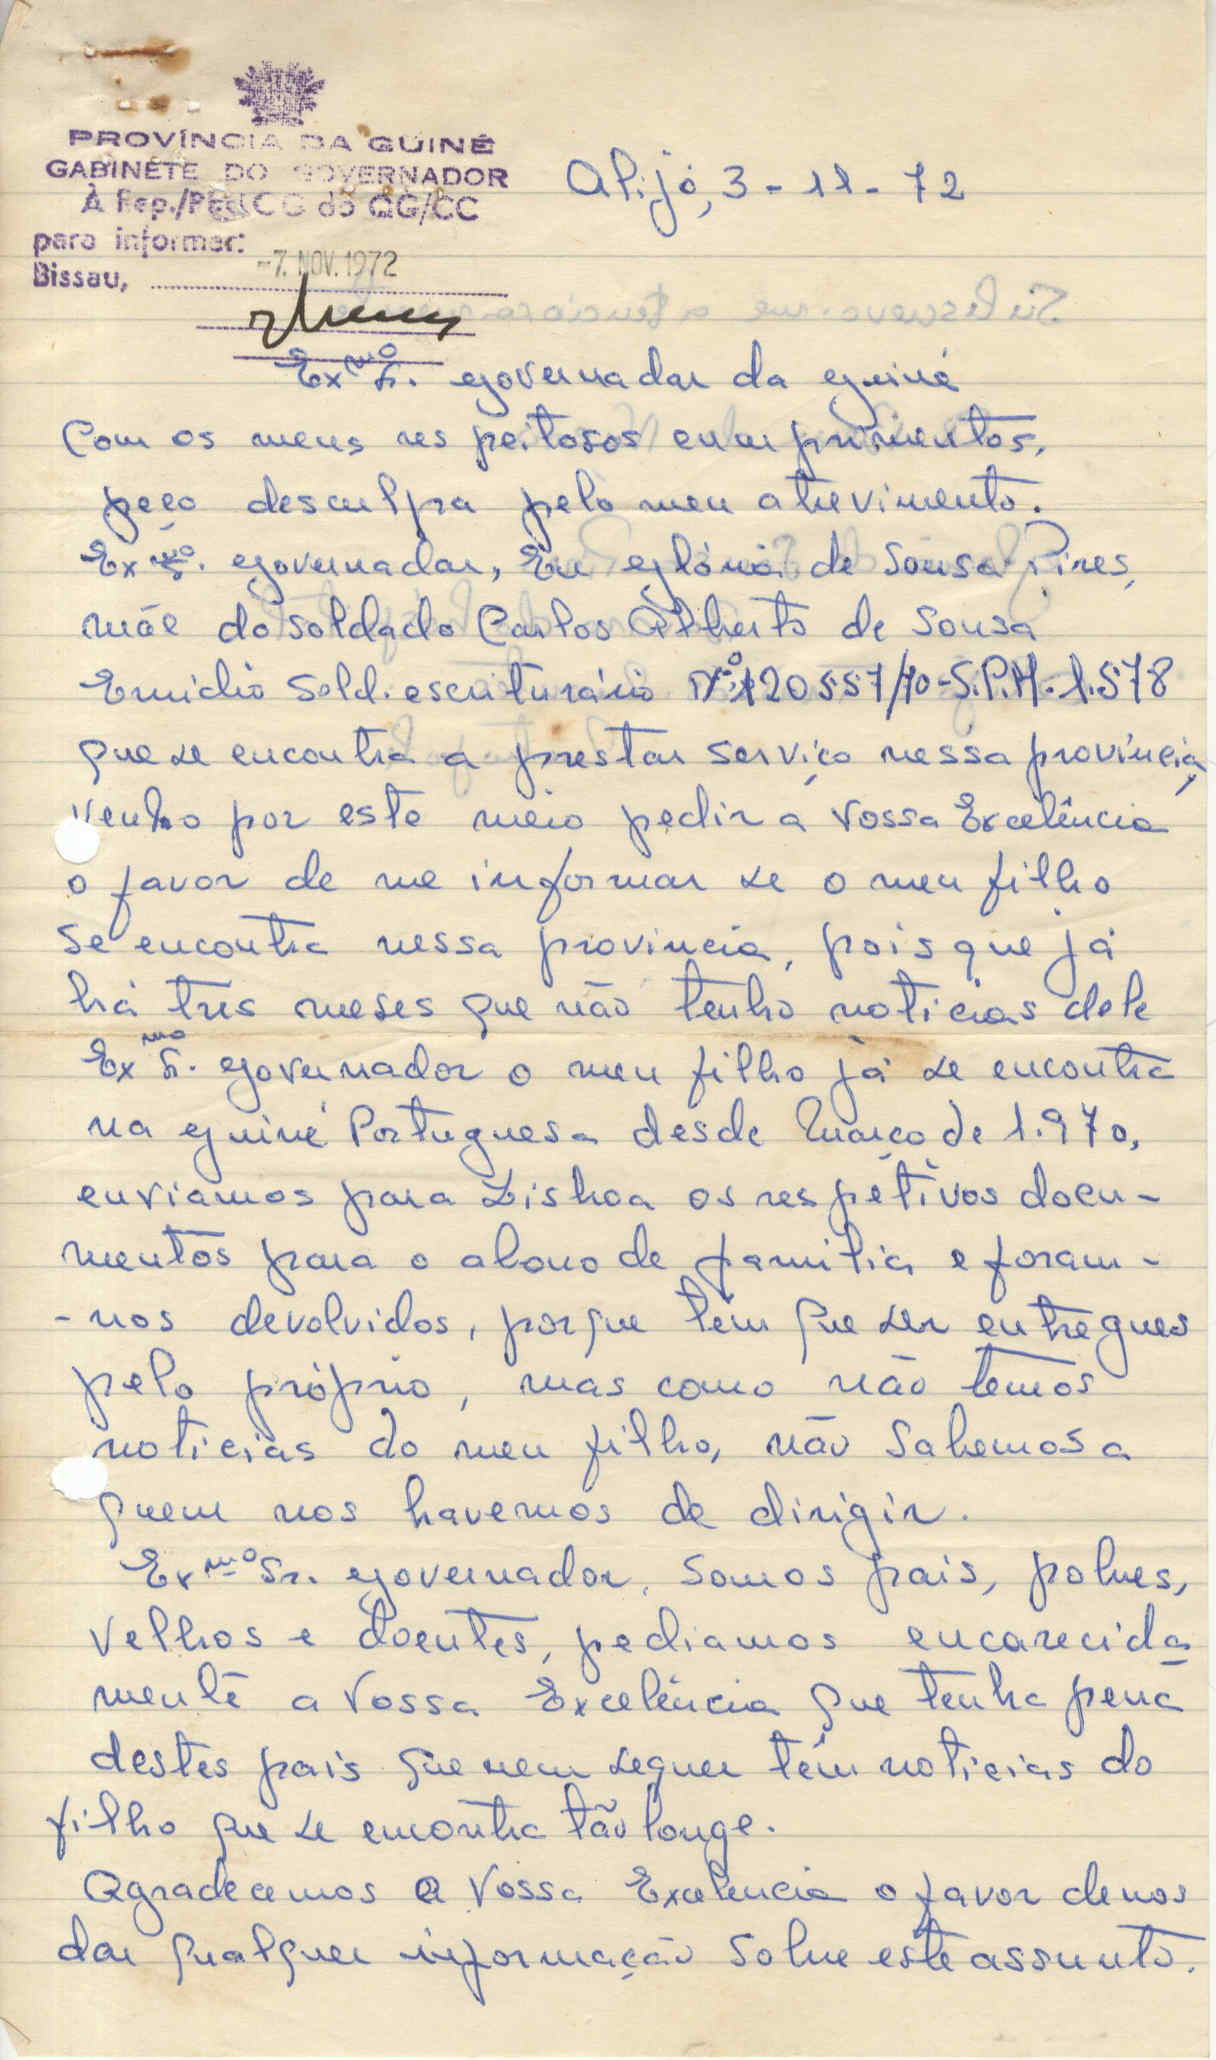 PROVÍNCIA DA GUINÉ
GABINETE DO GOVERNADOR
À Rep./ do QG/CC
para informar:
Bissau, -7. NOV. 1972
Alijó, 3-11-72
Exmo Sr. governador da guiné
Com os meus respeitosos cumprimentos,
peço desculpa pelo meu atrevimento.
Exmo Sr. governador, Eu glória de Sousa Pires,
mãe do soldado Carlos Alberto de Sousa
Emidio Sold. escriturário Nº 120557/70-S.P.M. 1.578
que se encontra a prestar serviço nessa província,
venho por este meio pedir a Vossa Excelência
o favor de me informar se o meu filho
se encontra nessa provincia, pois que já
há três meses que não tenho noticias dele
Exmo Sr. governador o meu filho já se encontra
na guiné Portuguesa desde Março de 1.970,
enviamos para Lisboa os respétivos docu-
mentos para o abono de familia e foram-
-nos devolvidos, porque têm que ser entregues
pelo próprio, mas como não temos
noticias do meu filho, não sabemos a
quem nos havemos de dirigir.
Exmo Sr. governador, somos pais, pobres,
velhos e doentes, pediamos encarecida
mente a Vossa Excelência que tenha pena
destes pais que nem sequer têm noticias do
filho que se encontra tão longe.
Agradecemos a Vossa Excelencia o favor de nos
dar qualquer informação sobre este assunto.